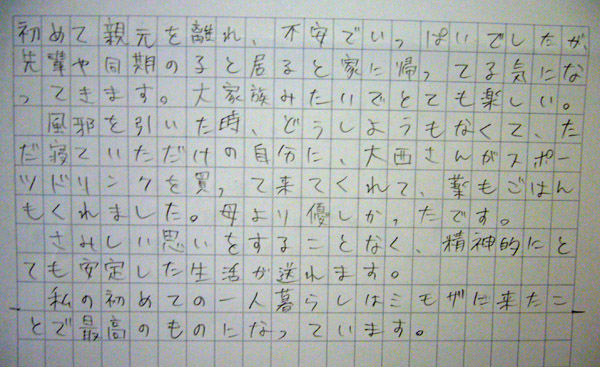 初めて親元を離れ、不安でいっぱいでしたが、
先輩や同期の子と居ると家に帰ってる気にな
ってきます。大家族みたいでとても楽しい。
風邪を引いた時、どうしようもなくて、た
だ寝ていただけの自分に、大西さんがスポー
ツドリンクを買って来てくれて、薬もごはん
もくれました。母より優しかったです。
さみしい思いをすることなく、精神的にと
ても安定した生活が送れます。
私の初めての一人暮らしはミモザに来たこ
とで最高のものになっています。